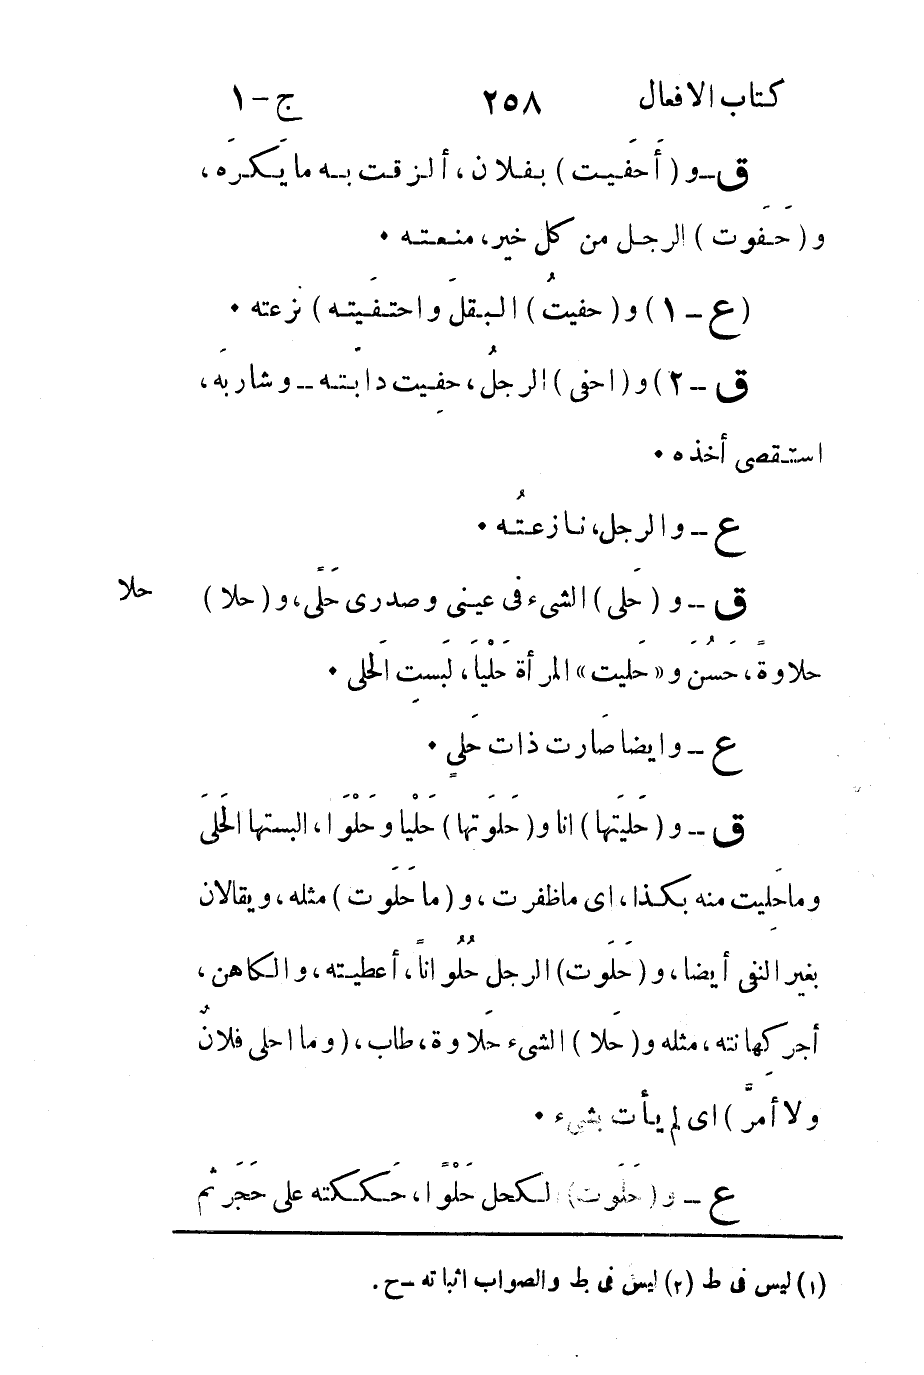 كتاب الافعال ٢٥٨ ج - ١
ق - و ( أَحفَيت ) بفلان ، ألزقت به ما يَكرَه ،
و ( حَفَوت ) الرجل من كل خير ، منعته •
( ع - ١ ) و ( حفيتُ ) البقلَ واحتفَيته ) نزعته •
ق - ٢ ) و ( احفى ) الرجلُ ، حفِيت دابَته - وشاربَه ،
استقصى أخذه •
ع - والرجل ، نازعتُه •
ق - و ( حَلى ) الشىء فى عينى وصدرى حَلًى ، و ( حلا ) حلا
حلاوةً ، حَسُنَ و « حَليت » المرأة حَلْيَا ، لَبسِت الحَلى •
ع - وايضا صَارت ذات حَلىٍ •
ق - و ( حَليَتها ) انا و ( حَلَوَتها ) حَلْيا وحَلْوَا ، البستها الحَلىَ
وماحَلِيت منه بكذا ، اى ماظفرت ، و ( ما حَلَوَت ) مثله ، ويقالان
بغير النفى أيضا ، و ( حَلَوت ) الرجل حُلُواناً ، أعطيته ، والكاهن ،
أجر كهِانته ، مثله و ( حَلا ) الشىء حَلاوة ، طاب ، ( وما احلى فلانُ
ولا أمرَّ ) اى لم يأت بشىء •
ع - و ( حَلَوَت ) لكحل حَلْوًا ، حَككته على حَجَر ثم
(١) ليس فى ط (٢) ليس فى ط والصواب اثباته - ح .